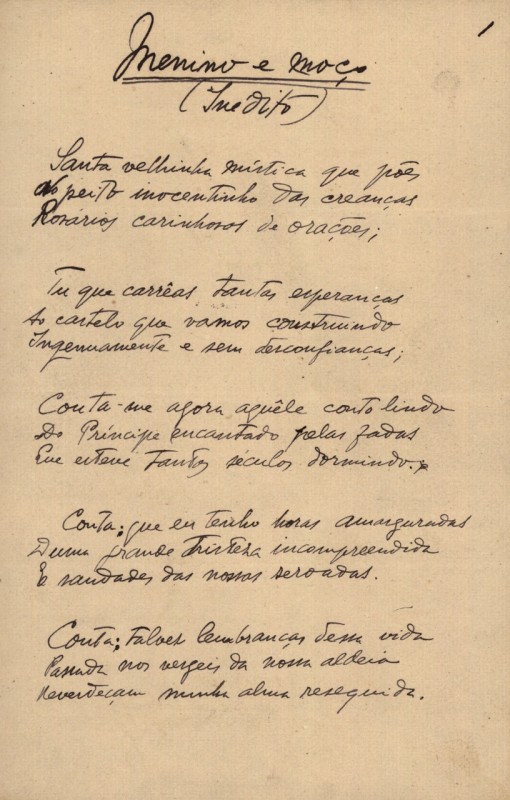 1
Menino e moço
(Inédito)
Santa velhinha mística que pões
No peito inocentinho das creanças
Rosários carinhosos de orações;
Tu que carrêas tantas esperanças
Ao castelo que vamos construindo
Ingenuamente e sem desconfianças;
Conta-me agora aquêle conto lindo
Do Príncipe encantado pelas fadas
Que esteve tantos séculos dormindo.
Conta; que eu tenho horas amarguradas
Duma grande tristeza incompreendida
E saudades das nossas seroadas.
Conta; talvez lembranças dessa vida
Passada nos vergeis da nossa aldeia
Reverdeçam minha alma resequida.